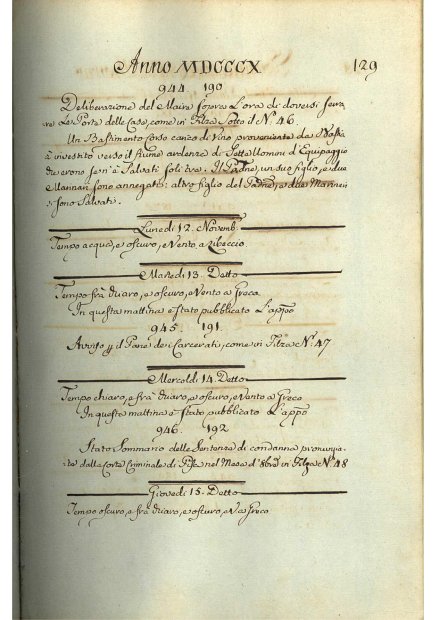 Anno MDCCCX
129
944. 190
Deliberazione del Maire sopra l'ora di doversi serra
re le Porte delle Case, come in Filza sotto il N.º 46.
Un Bastimento carico di Vino proveniente da
à investito verso il fiume ardenza di Sette Uomini d'Equipaggio
che erono se n'è Salvati soli tre. Il Padre, un suo figlio, e due
Marinari sono annegati: altro figlio del Padre, e due Marinari
sono Salvati.
Lunedì 12. Novemb:
Tempo acqua, e oscuro, e Vento a Libeccio
Martedì 13. Detto
Tempo frà chiaro, e oscuro, e Vento a Greco
In questa mattina è stato pubblicato l'appo
945. 191.
Avviso p il Pane dei Carcerati, come in Filza N.º 47
Mercoldì 14. Detto
Tempo chiaro, e frà chiaro, e oscuro, e Vento a Greco
In questa mattina è stato pubblicato l'appo
946. 192
Stato Sommario delle Sentenze di condanna pronunzia-
te dalla Corte Criminale di Pisa nel Mese d'8bre in Filza N.º 48
Giovedì 15. Detto
Tempo oscuro, e frà chiaro, e oscuro, e V. a Greco